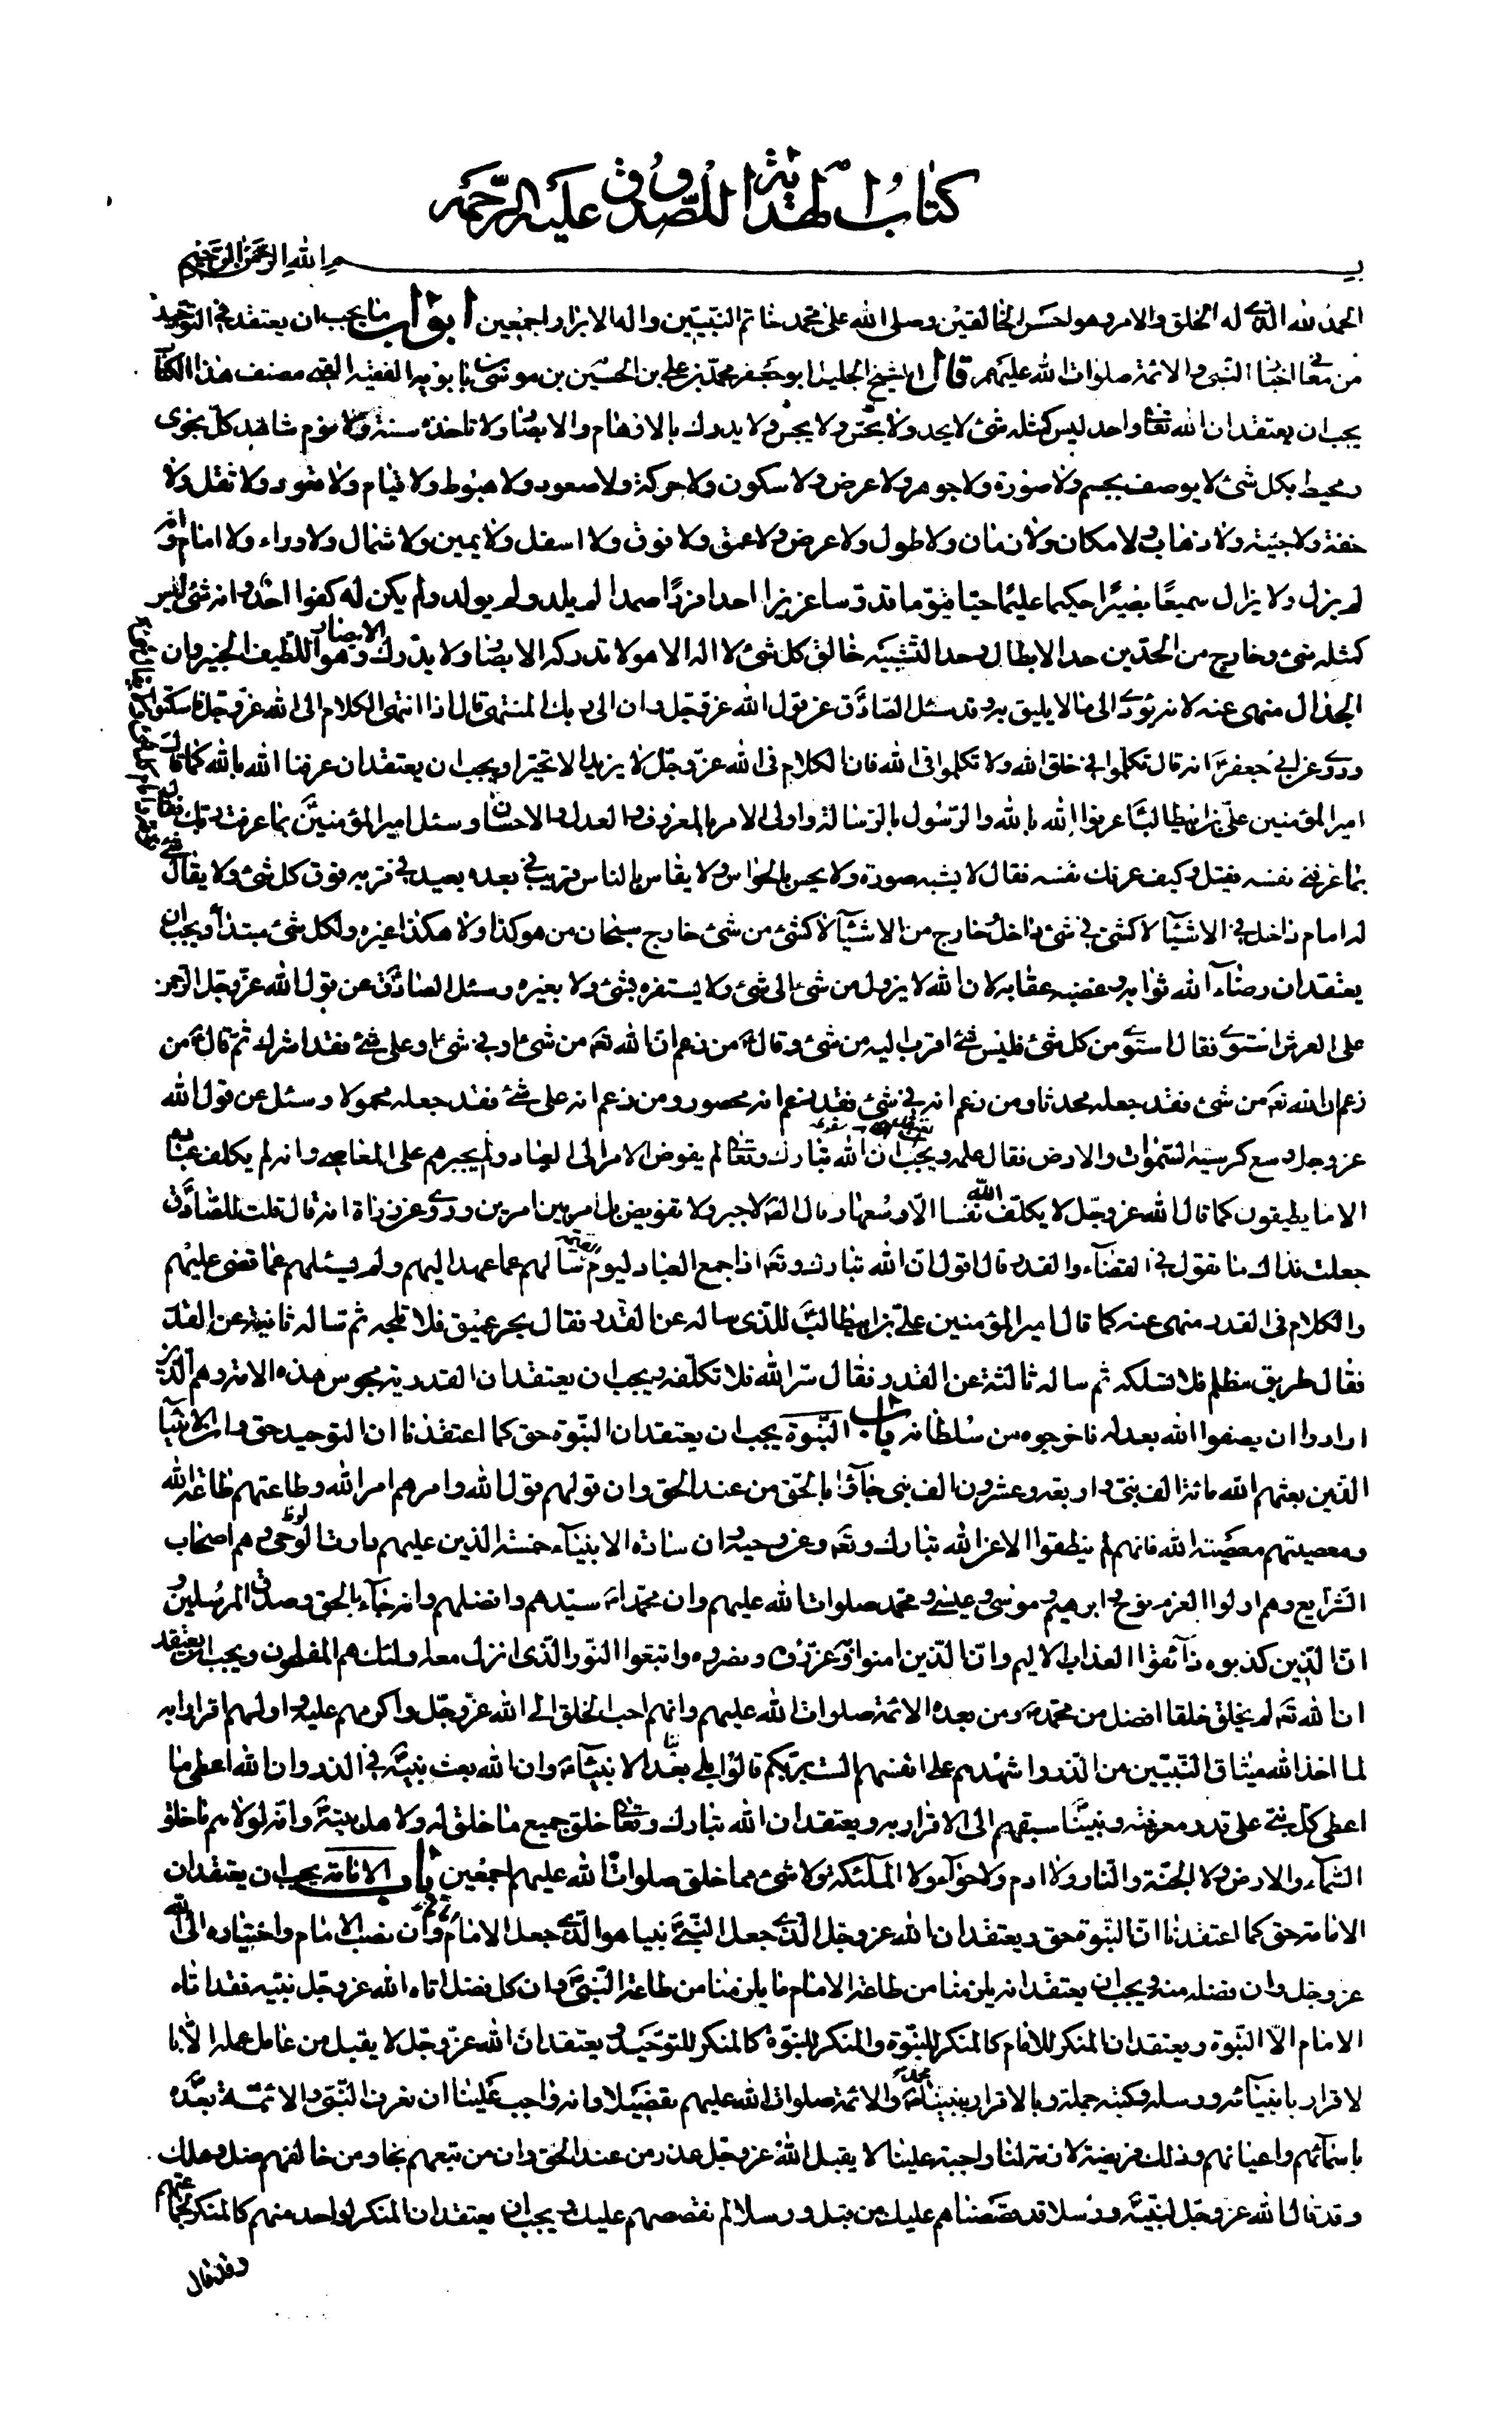 كتاب الهداية للصدوق عليه الرحمه
بسم الله الرحمن الرحيم
الحمد لله الذي له الخلق والامر وهو احسن الخالقين وصلى الله على محمد خاتم النبيين واله الابرار اجمعين ابواب ما يجب ان يعتقد في التوحيد
من معاني اخبار النبي والائمة صلوات الله عليهم قال الشيخ الجليل ابو جعفر محمد بن علي بن الحسين بن موسى بن بابويه الفقيه القمي مصنف هذا الكتاب
يجب ان يعتقد ان الله تعالى واحد ليس كمثله شئ لا يحد ولا يحس ولا يجس ولا يدرك بالاوهام والابصار ولا تاخذه سنة ولا نوم شاهد كل نجوى
ومحيط بكل شئ لا يوصف بجسم ولا صورة ولا جوهر ولا عرض ولا سكون ولا حركة ولا صعود ولا هبوط ولا قيام ولا قعود ولا ثقل ولا
خفة ولا جيئة ولا ذهاب ولا مكان ولا زمان ولا طول ولا عرض ولا عمق ولا فوق ولا اسفل ولا يمين ولا شمال ولا وراء ولا امام وانه
لم يزل ولا يزال سميعا بصيرا حكيما عليما حيا قيوما قدوسا عزيزا احدا فردا صمدا لم يلد ولم يولد ولم يكن له كفوا احد وانه شئ ليس
كمثله شئ وخارج من الحدين حد الابطال وحد التشبيه خالق كل شئ لا اله الا هو لا تدركه الابصار وهو يدرك الابصار وهو اللطيف الخبير وان
الجدال منهى عنه لانه يؤدي الى ما لا يليق به وقد سئل الصادق عن قول الله عز وجل وان الى ربك المنتهى قال اذا انتهى الكلام الى الله عز وجل فاسكتوا
وروي عن ابي جعفر انه قال تكلموا في خلق الله ولا تكلموا في الله فان الكلام في الله عز وجل لا يزيد الا تحيرا ويجب ان يعتقد ان عرفنا الله بالله كما قال
امير المؤمنين علي بن ابيطالب اعرفوا الله بالله والرسول بالرسالة واولى الامر بالمعروف والعدل والاحسان وسئل امير المؤمنين بما عرفت ربك فقال
بما عرفني نفسه فقيل وكيف عرفك نفسه فقال لا يشبه صورة ولا يحس بالحواس ولا يقاس بالناس قريب في بعده بعيد في قربه فوق كل شئ ولا يقال
له امام داخل في الاشياء لا كشئ في شئ داخل وخارج من الاشياء لا كشئ من شئ خارج سبحان من هو كذا ولا هكذا غيره ولكل شئ مبتدأ ويجب ان
يعتقد ان رضاء الله ثوابه وغضبه عقابه لان الله لا يزول من شئ الى شئ ولا يستفزه شئ ولا يغيره وسئل الصادق عن قول الله عز وجل الرحمن
على العرش استوى فقال استوى من كل شئ فليس شئ اقرب اليه من شئ وقال من زعم ان الله تعم من شئ او في شئ او على شئ فقد اشرك ثم قال من
زعم ان الله تعم من شئ فقد جعله محدثا ومن زعم انه في شئ فقد زعم انه محصور ومن زعم انه على شئ فقد جعله محمولا وسئل عن قول الله
عز وجل وسع كرسيه السموات والارض فقال علمه ويجب ان الله تبارك وتعالى لم يفوض الامر الى العباد ولم يجبرهم على المعاصي وانه لم يكلف عباده
الا ما يطيقون كما قال الله عز وجل لا يكلف الله نفسا الا وسعها وقال الصم لا جبر ولا تفويض بل امر بين امرين وروي عن زرارة انه قال قلت للصادق
جعلت فداك ما تقول في القضاء والقدر قال اقول ان الله تبارك وتعم اذا جمع العباد ليوم القيمة سالهم عما عهد اليهم ولم يسئلهم عما قضى عليهم
والكلام في القدر منهى عنه كما قال امير المؤمنين علي بن ابيطالب للذي ساله عن القدر فقال بحر عميق فلا تلجه ثم ساله ثانية عن القدر
فقال طريق مظلم فلا تسلكه ثم ساله ثالثة عن القدر فقال سر الله فلا تكلفه ويجب ان يعتقد ان القدرية مجوس هذه الامة وهم الذين
ارادوا ان يصفوا الله بعدله فاخرجوه من سلطانه باب النبوة يجب ان يعتقد ان النبوة حق كما اعتقدنا ان التوحيد حق وان الانبياء
الذين بعثهم الله مائة الف نبى واربعة وعشرون الف نبى جاؤا بالحق من عند الحق وان قولهم قول الله وامرهم امر الله وطاعتهم طاعة الله
ومعصيتهم معصية الله فانهم لم ينطقوا الا عن الله تبارك وتعم وعن وحيه وان سادة الانبياء خمسة الذين عليهم دارت الوحي وهم اصحاب
الشرايع وهم اولوا العزم نوح وابرهيم وموسى وعيسى ومحمد صلوات الله عليهم وان محمدا سيدهم وافضلهم وانه جاء بالحق وصدق المرسلين و
ان الذين كذبوه ذائقوا العذاب الاليم وان الذين امنوا به وعزروه ونصروه واتبعوا النور الذي انزل معه اولئك هم المفلحون ويجب ان يعتقد
ان الله تعم لم يخلق خلقا افضل من محمد ومن بعده الائمة صلوات الله عليهم وانهم احب الخلق الى الله عز وجل واكرمهم عليه واولهم اقرارا به
لما اخذ الله ميثاق النبيين من الذر واشهدهم على انفسهم الست بربكم قالوا بلى بعدها الانبياء وان الله بعث نبيه في الذر وان الله اعطى ما
اعطى كل نبي على قدر معرفته ونبينا سبقهم الى الاقرار به ويعتقد ان الله تبارك وتعالى خلق جميع ما خلق له ولاهل بيته وانه لولاهم ما خلق
السماء والارض ولا الجنة والنار ولا ادم ولا حواء ولا الملئكة ولا شئ مما خلق صلوات الله عليهم اجمعين باب الامامة يجب ان يعتقد ان
الامامة حق كما اعتقدنا ان النبوة حق ويعتقد ان الله عز وجل الذي جعل النبي نبيا هو الذي جعل الامام وان نصب الامام واختياره الى الله
عز وجل وان فضله منه ويجب ان يعتقد انه يلزمنا من طاعة الامام ما يلزمنا من طاعة النبي وان كل فضل اتاه الله عز وجل نبيه فقد اتاه
الامام الا النبوة ويعتقد ان المنكر للامام كالمنكر للنبوة والمنكر للنبوة كالمنكر للتوحيد ويعتقد ان الله عز وجل لا يقبل من عامل عمله الا با
لاقرار بانبيائه ورسله وكتبه جملة وبالاقرار بنبينا محمد والائمة صلوات الله عليهم تفضيلا وانه واجب علينا ان نعرف النبى والائمة بعده
باسمائهم واعيانهم وذلك فريضة لازمة لنا واجبة علينا لا يقبل الله عز وجل عذر من عند الحق وان من تبعهم نجا ومن خالفهم ضل وهلك
وقد قال الله عز وجل لنبيه ورسلا قد قصصناهم عليك من قبل ورسلا لم نقصصهم عليك ويجب ان يعتقد ان المنكر لواحد منهم كالمنكر لجماعتهم
وقد قال